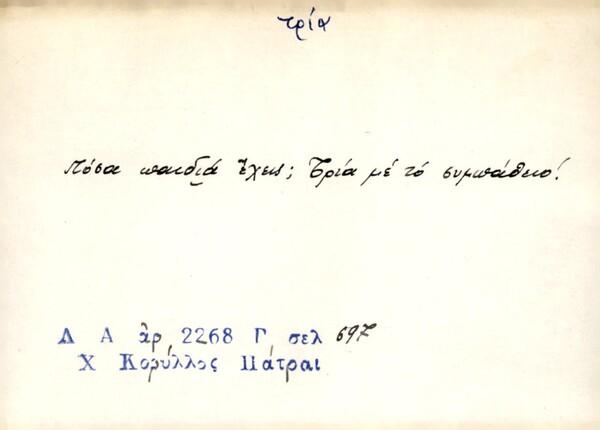 τρία
Πόσα παιδιά ἔχεις; Τρία μέ τό συμπάθειο!
Λ Α ἀρ. 2268 Γ, σελ 697
Χ Κορύλλος Πάτραι